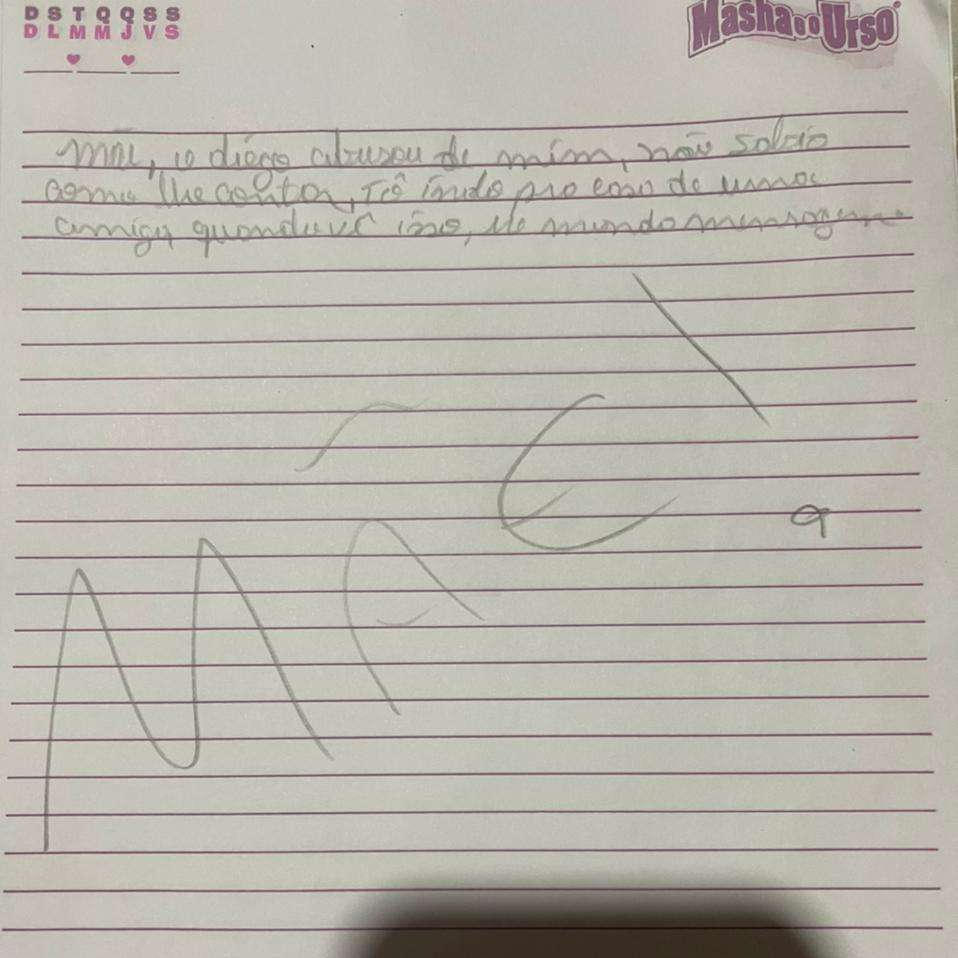 D S T Q Q S S
D L M M J V S
Masha e o Urso
mãe, o diego abusou de mim, não sabia
como lhe contar, Tô indo pro casa de uma
amiga, quando vê isso, me manda mensagem
MÃE
a